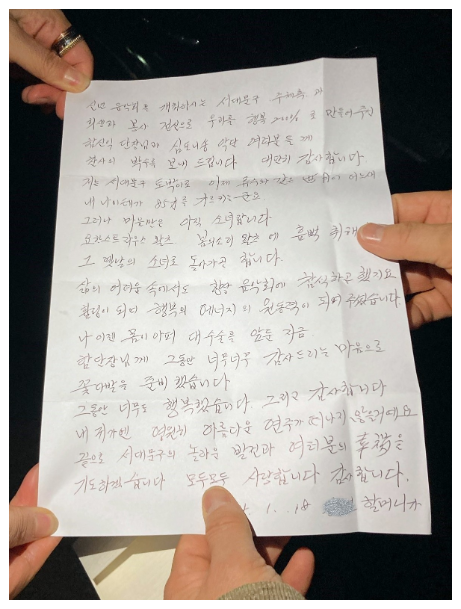 신년 음악회를 개최하시는 서대문구 구청측과
봉사 정신으로 행복 200% 로 만들어주신
함신익 단장님과 심포니송 악단 여러분들께
감사의 박수를 보내 드립니다 대단히 감사합니다.
저는 서대문구 토박이로 이제 어느새
내 나이테가
그러나 마음만은 아직 소녀랍니다
요한스트라우스 왈츠 봄의소리 왈츠에 흠뻑 취해
그 옛날의 소녀로 돌아가곤 합니다.
삶의 어려움 속에서도 항상 음악회에 참석하곤 했기요
힐링이 되며 행복의 에너지의 원동력이 되어 주었습니다.
나 이젠 몸이 아퍼 대수술을 앞둔 지금
함단장님께 그동안 너무너무 감사드리는 마음으로
꽃다발을 준비했습니다
그동안 너무도 행복했습니다. 그리고 감사합니다
내 귀가엔 영원히 아름다운 연주가 떠나지 않을거예요
끝으로 서대문구의 놀라운 발전과 여러분의 幸福을
기도하겠습니다 모두모두 사랑합니다 감사합니다.
1. 18 할머니가